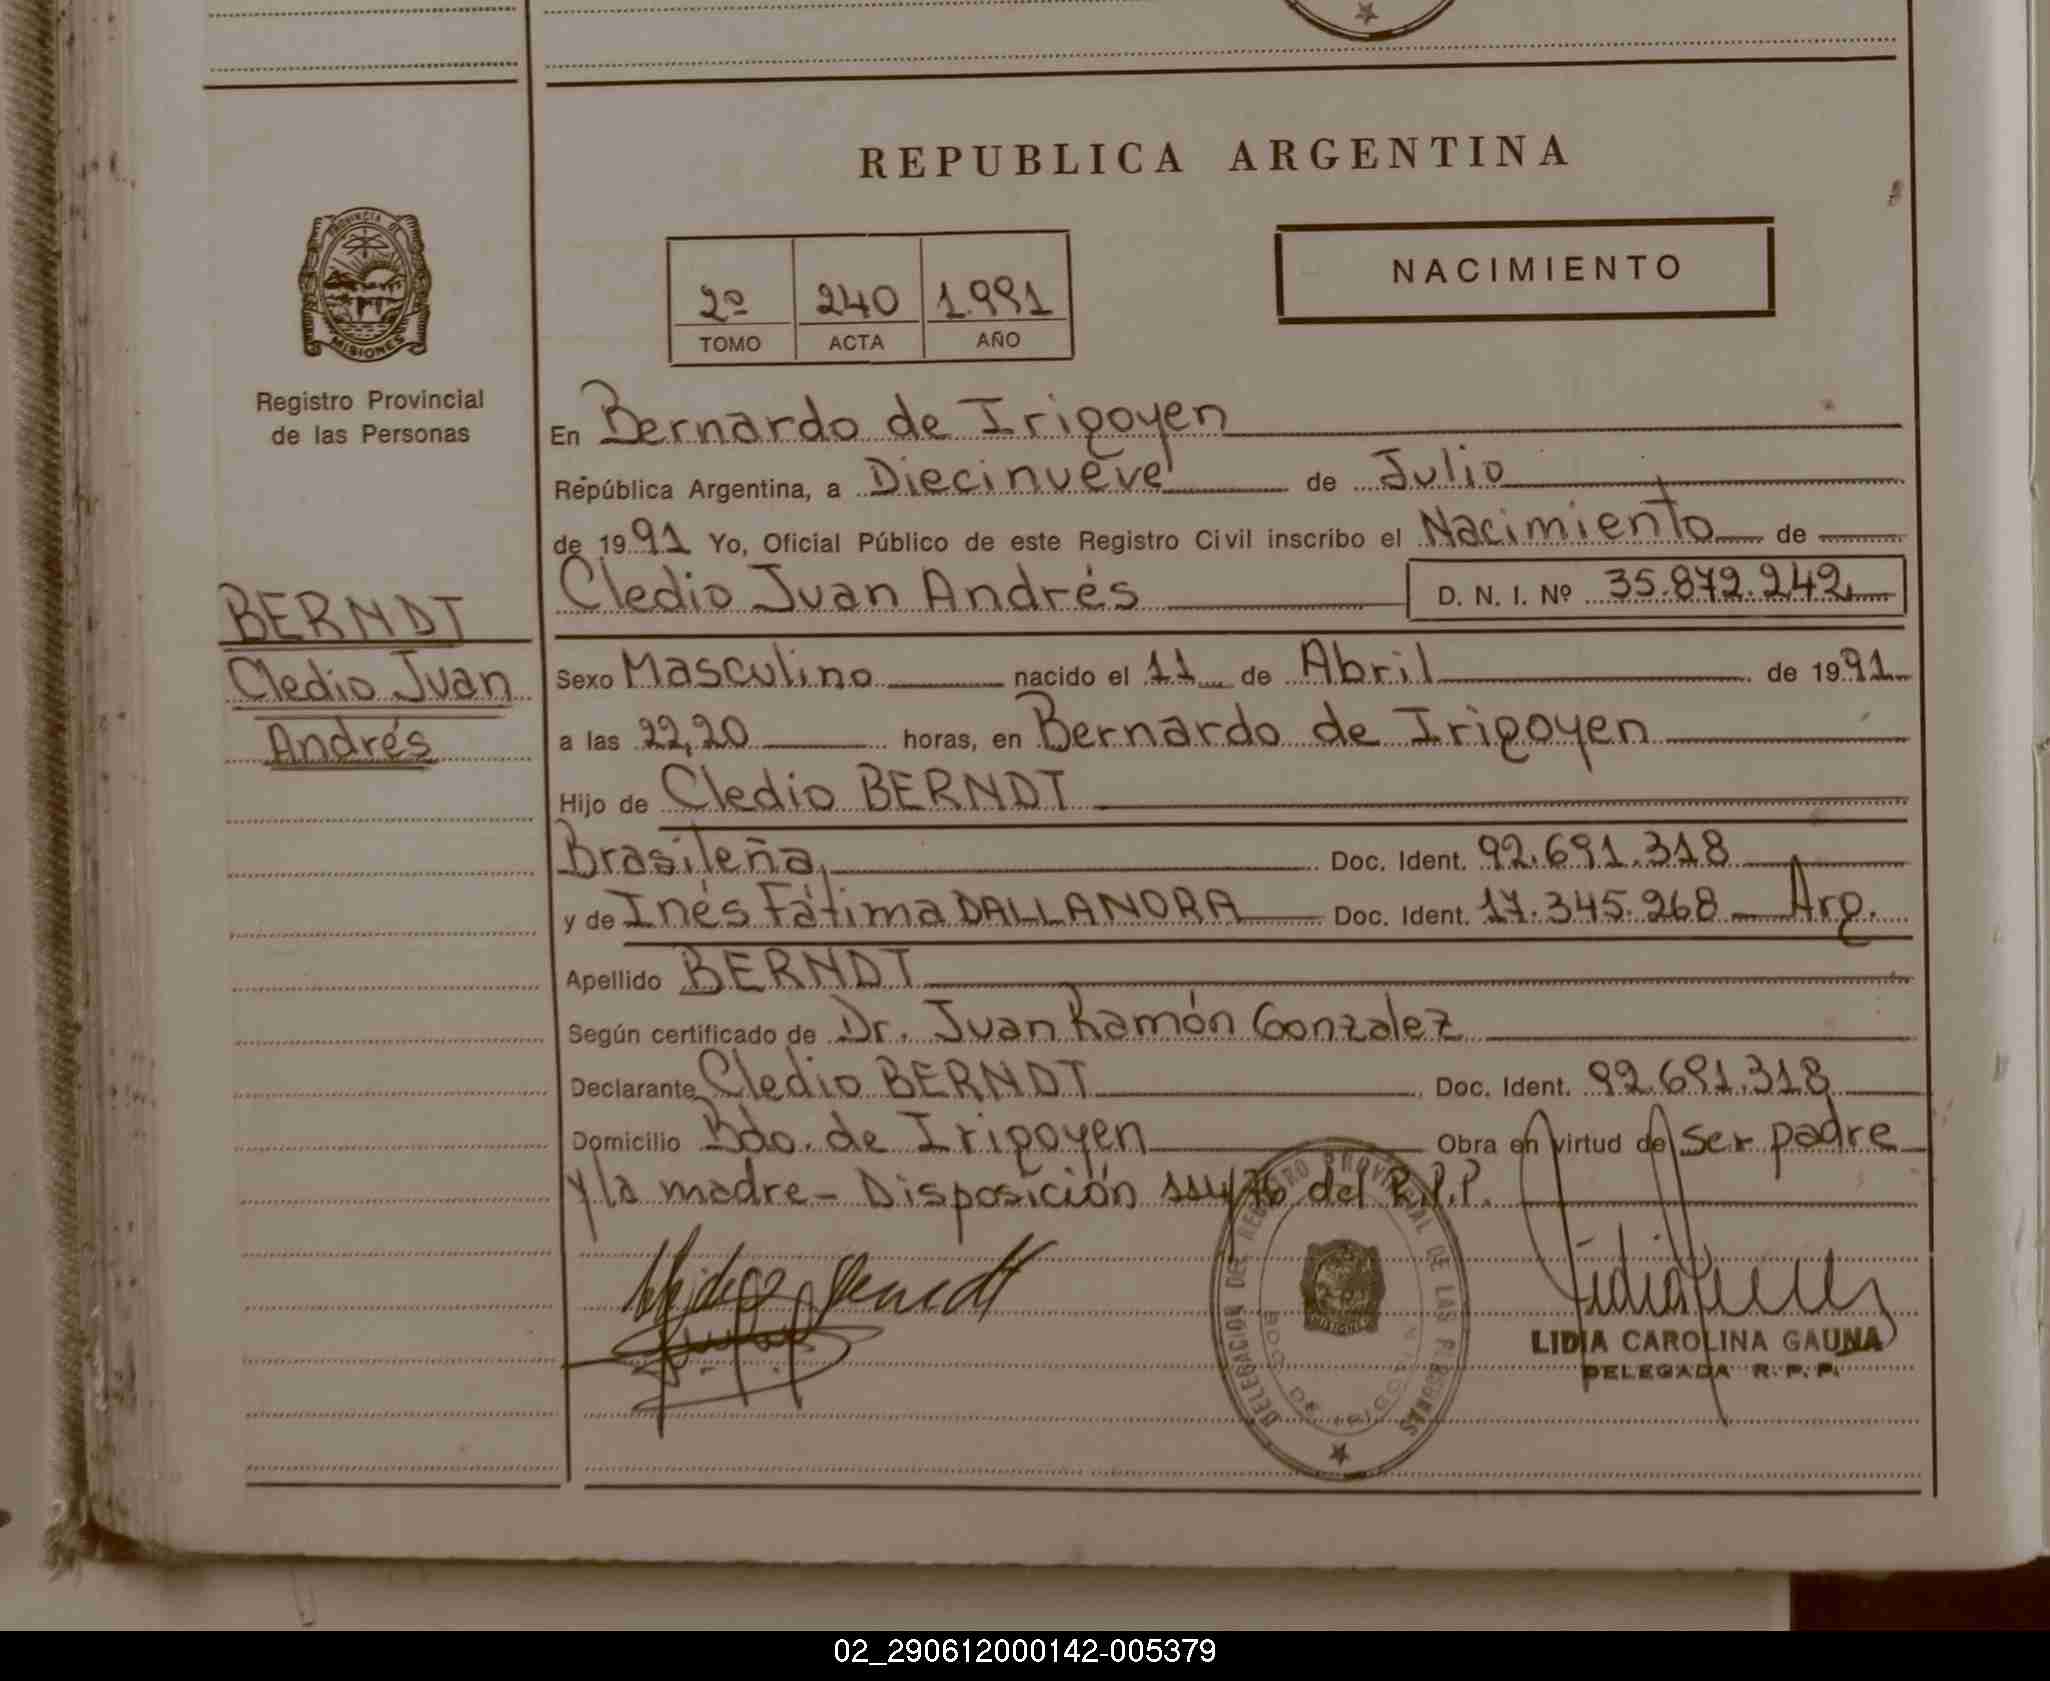 REPUBLICA ARGENTINA
PROVINCIA DE
MISIONES
Registro Provincial
de las Personas
2º 240 1.991
TOMO ACTA AÑO
NACIMIENTO
En Bernardo de Irigoyen
República Argentina, a Diecinueve de Julio
de 1991 Yo, Oficial Público de este Registro Civil inscribo el Nacimiento de
Cledio Juan Andrés D. N. I. Nº 35.872.242
BERNDT
Cledio Juan
Andrés
Sexo Masculino nacido el 11 de Abril de 1991
a las 22,20 horas, en Bernardo de Irigoyen
Hijo de Cledio BERNDT
Brasileña, Doc. Ident. 92.691.318
y de Inés Fátima DALLANORA Doc. Ident. 17.345.268 Arg.
Apellido BERNDT
Según certificado de Dr. Juan Ramón Gonzalez
Declarante Cledio BERNDT Doc. Ident. 92.691.318
Domicilio Bdo. de Irigoyen Obra en virtud de ser padre
y la madre - Disposición 114/76 del R.P.P.
DELEGACION DEL REGISTRO PROVINCIAL DE LAS PERSONAS
BDO. DE IRIGOYEN
LIDIA CAROLINA GAUNA
DELEGADA R. P. P.
02_290612000142-005379